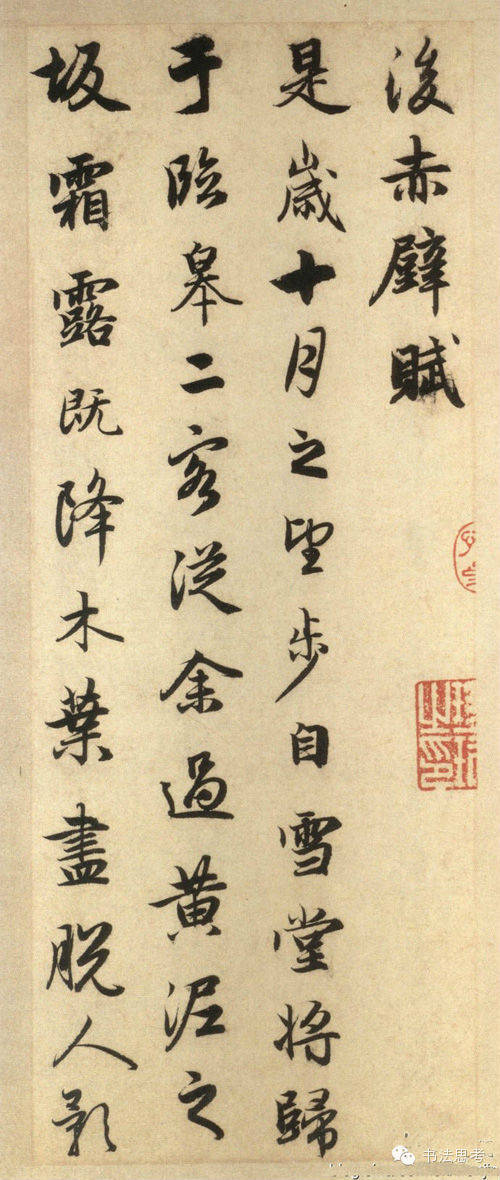 後赤壁賦
是歲十月之望步自雪堂將歸
于臨皋二客從余過黃泥之
坂霜露既降木葉盡脫人影
书法思考